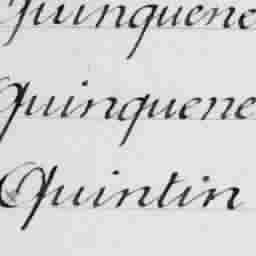 Quinquene
Quinquene
Quintin